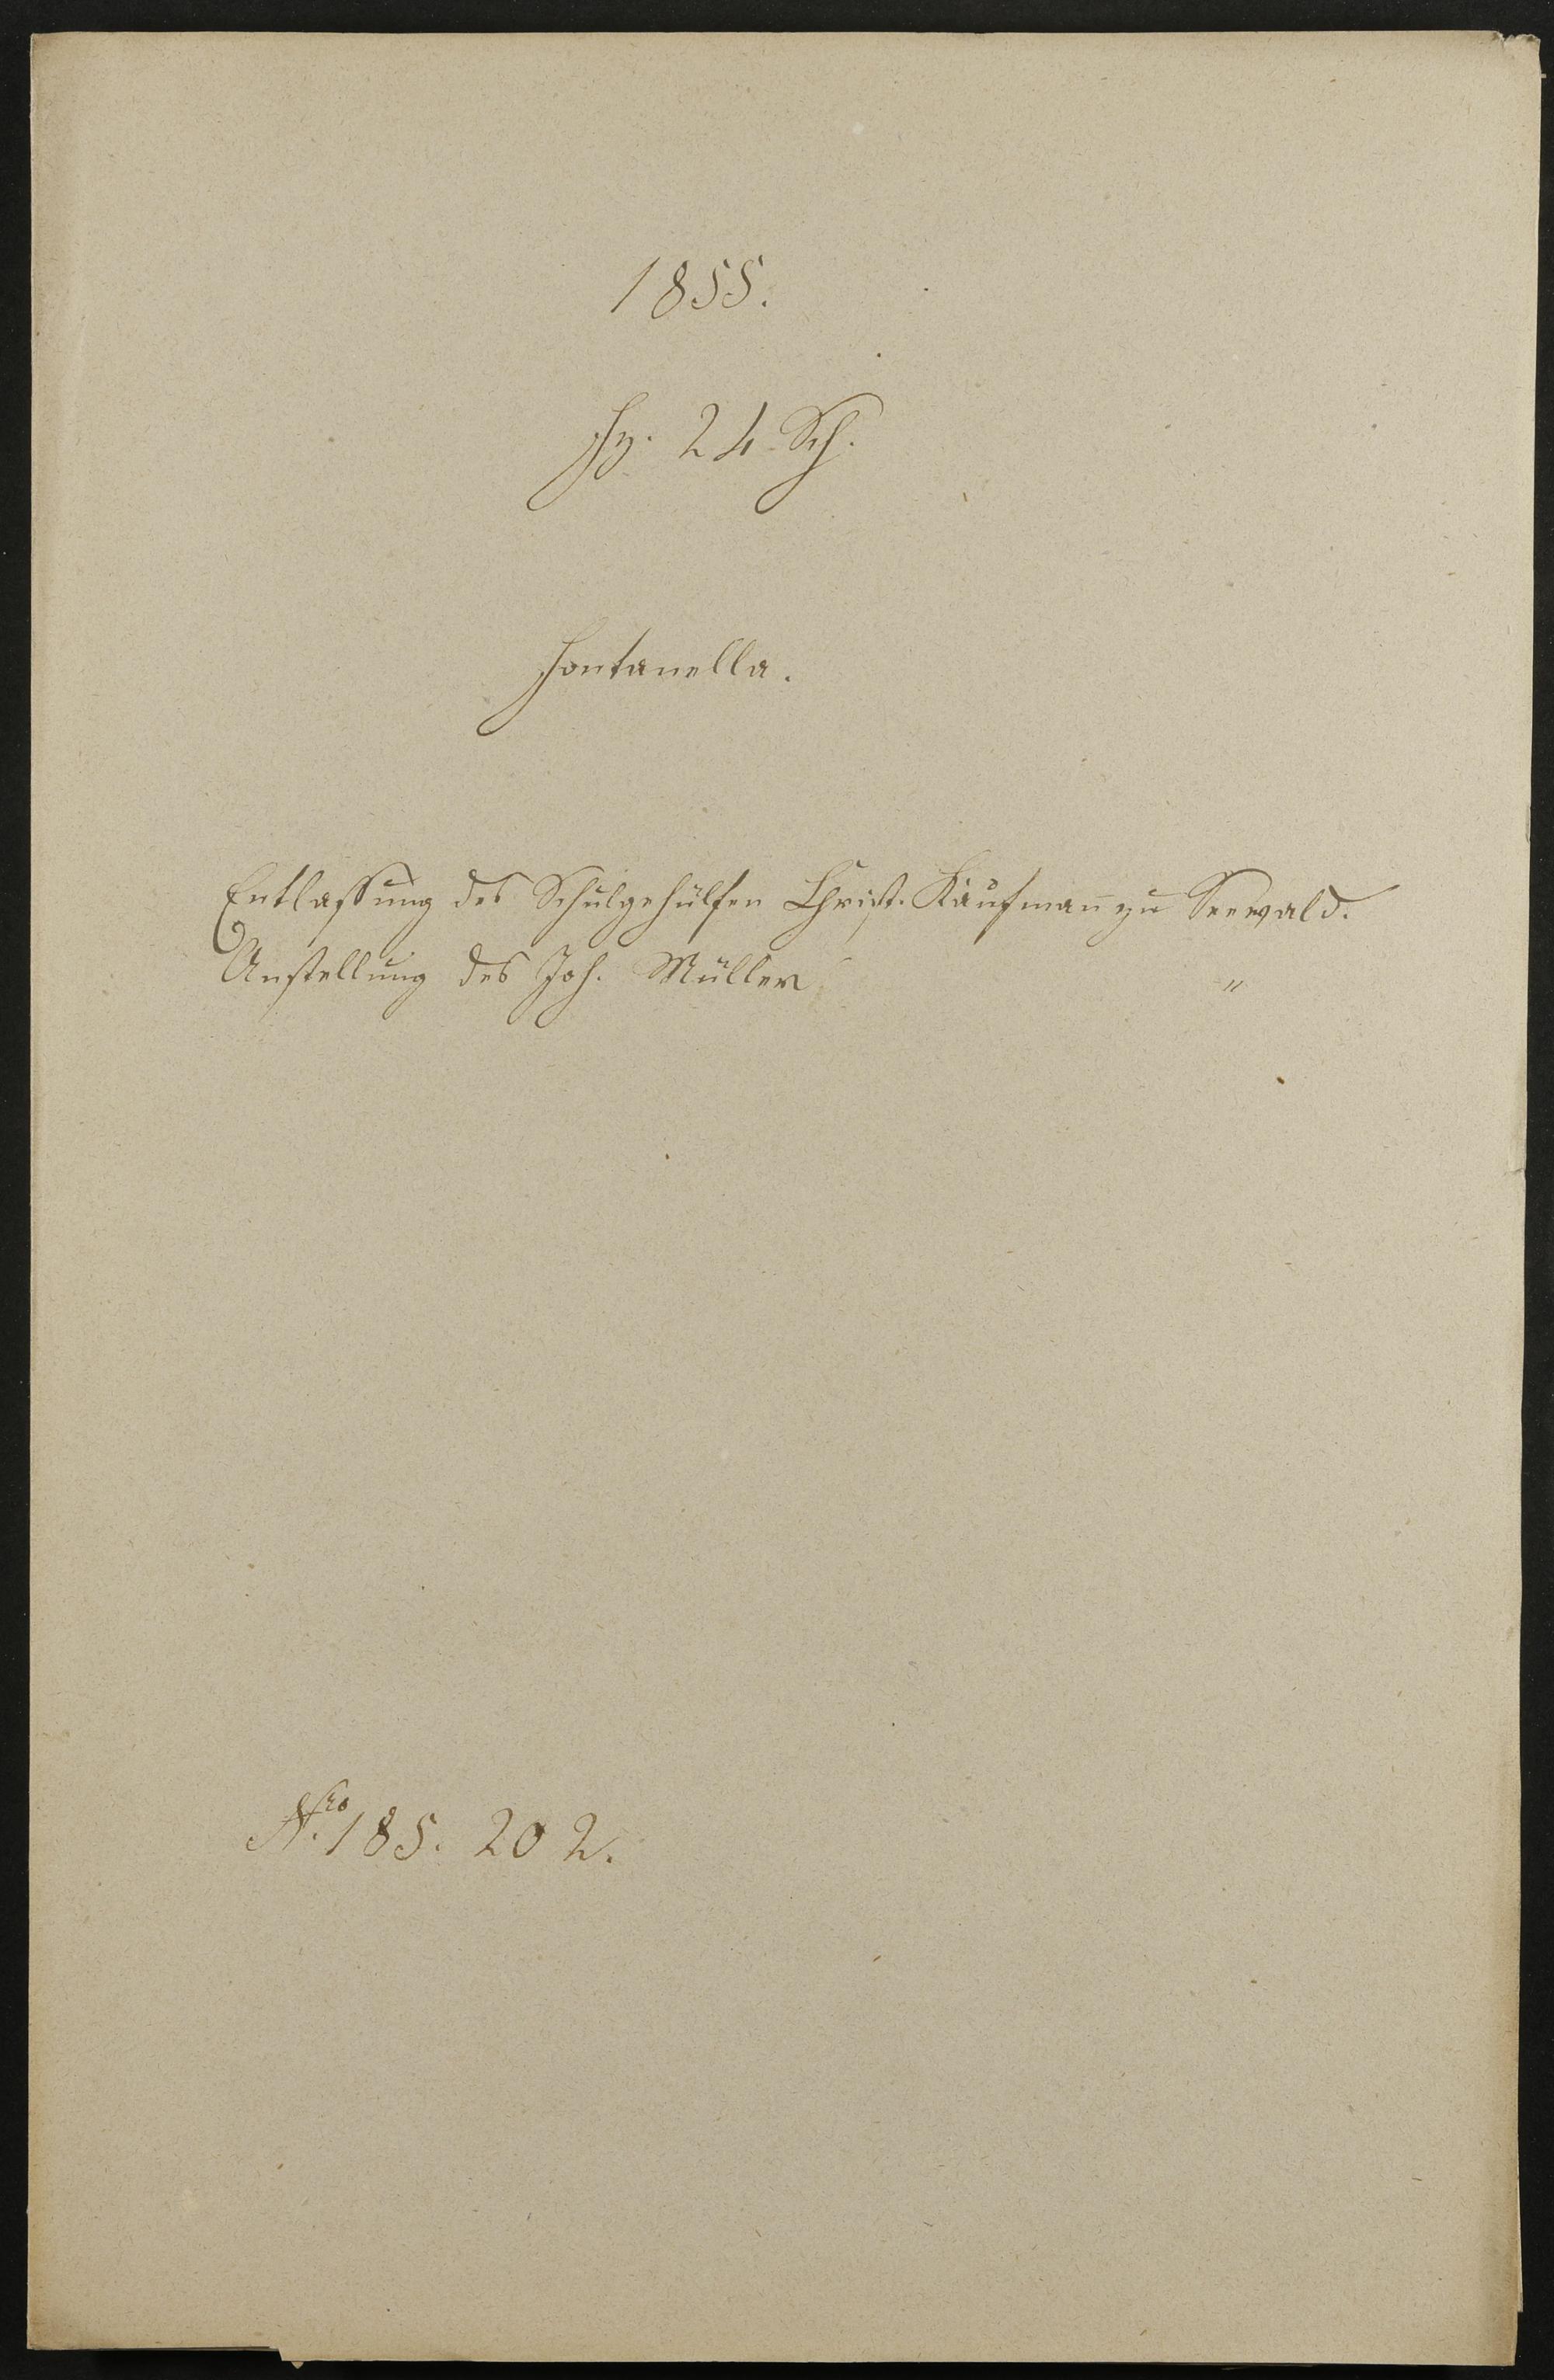 1855.
Fz. 24 Sch.
Fontanella.
Entlassung des Schulgehülfen Christ. Kaufman̄ zu Seewald.
Anstellung des Joh. Müller "
Nro. 185. 202.